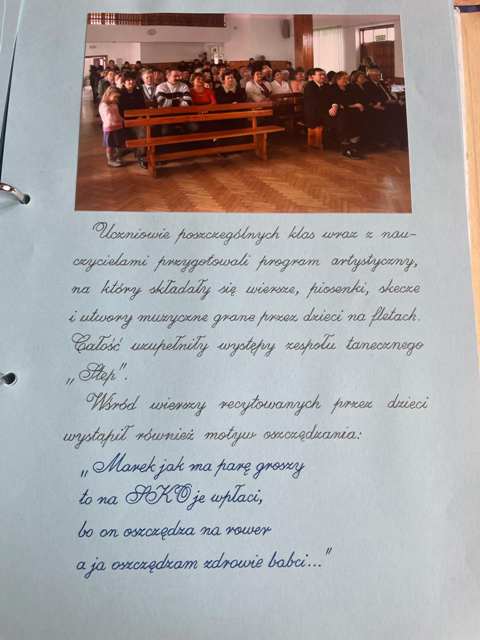 Uczniowie poszczególnych klas wraz z nau-
czycielami przygotowali program artystyczny,
na który składały się wiersze, piosenki, skecze
i utwory muzyczne grane przez dzieci na fletach.
Całość uzupełniły występy zespołu tanecznego
„Step".
Wśród wierszy recytowanych przez dzieci
wystąpił również motyw oszczędzania:
„Marek jak ma parę groszy
to na SKO je wpłaci,
bo on oszczędza na rower
a ja oszczędzam zdrowie babci..."